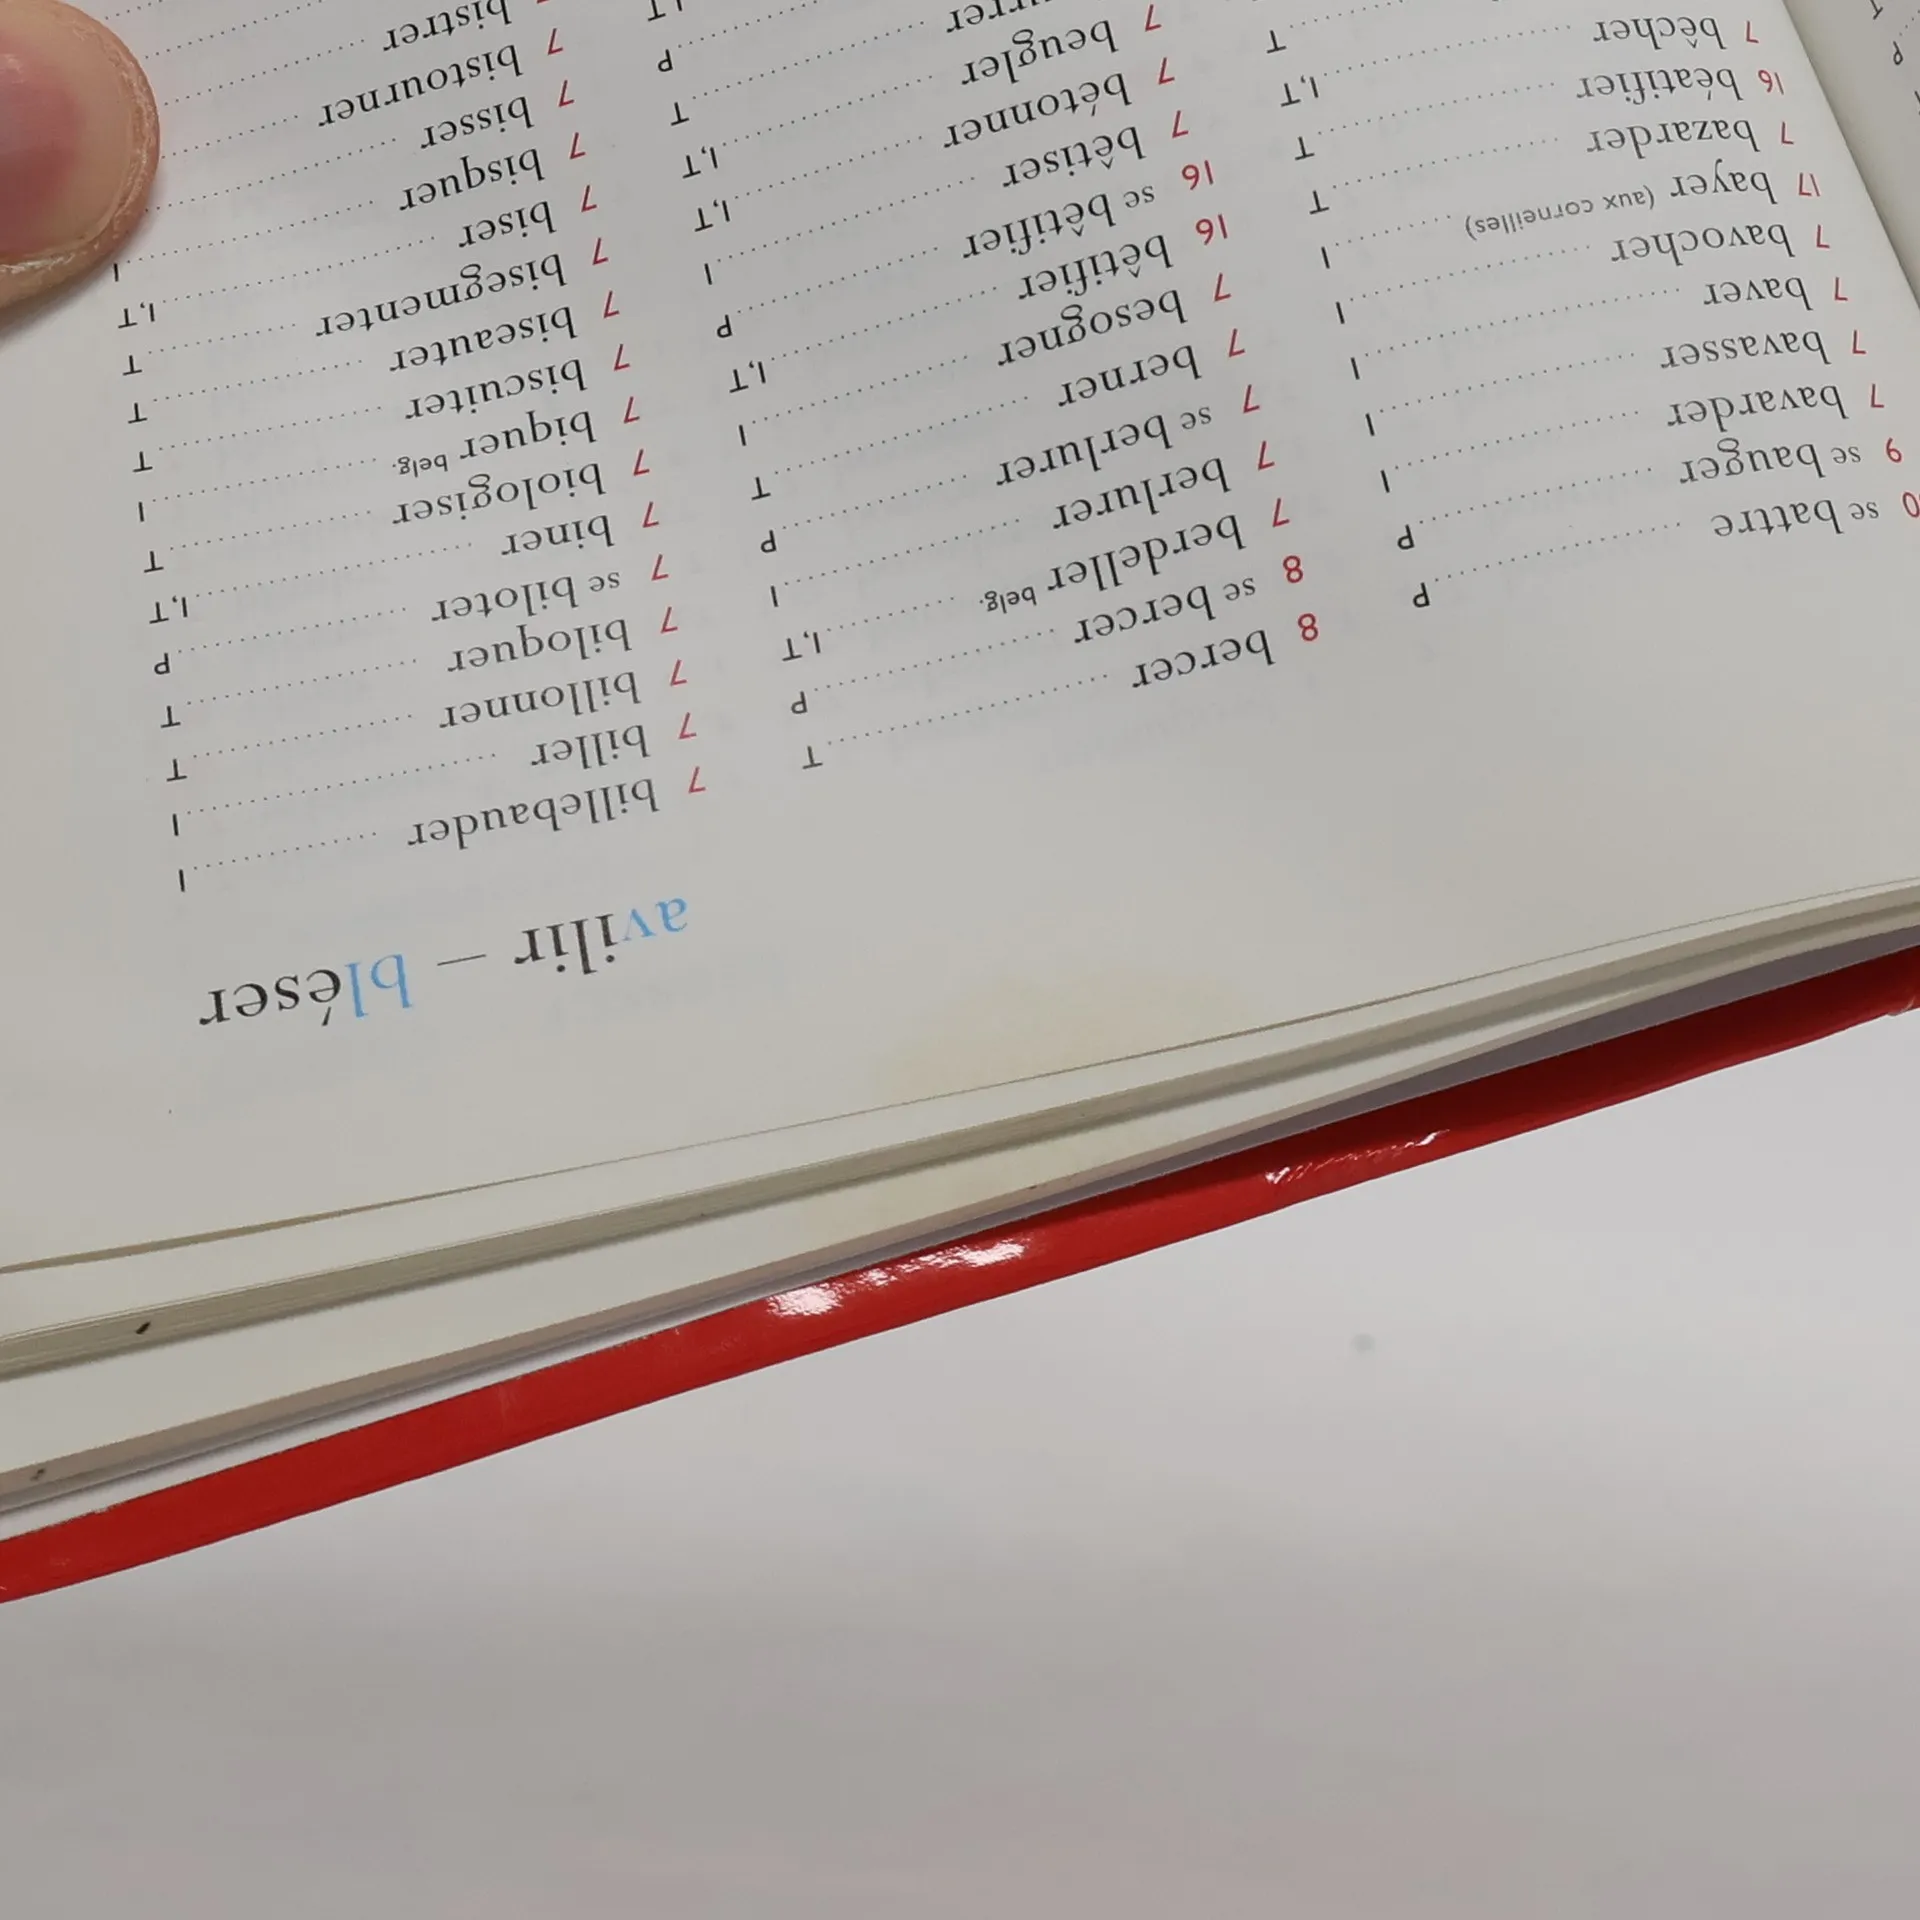 avilir – bléser
0 se battre P
9 se bauger P
7 bavarder I
7 bavasser I
7 baver I
7 bavocher I
17 bayer (aux corneilles) I
7 bazarder T
16 béatifier T
7 bêcher I,T
T
8 bercer T
8 se bercer P
7 berdeller belg. I,T
7 berlurer I
7 se berlurer P
7 berner T
7 besogner I
16 bêtifier I,T
16 se bêtifier P
7 bêtiser I
7 bétonner I,T
7 beugler I,T
T
P
7 billebauder I
7 biller I
7 billonner T
7 biloquer T
7 se biloter P
7 biner I,T
7 biologiser T
7 biquer belg. I
7 biscuiter T
7 biseauter T
7 bisegmenter T
7 biser I,T
7 bisquer I
7 bisser
7 bistourner
bistrer